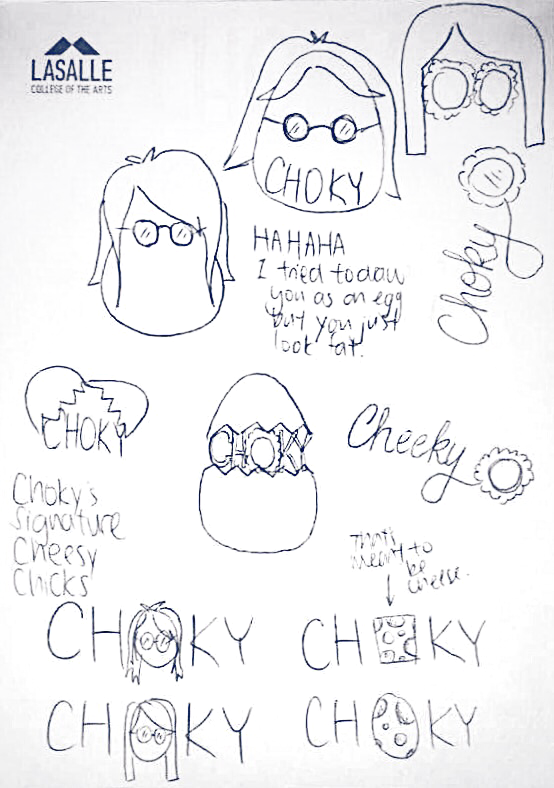 LASALLE
COLLEGE OF THE ARTS
CHOKY
HAHAHA
I tried to draw
you as an egg
but you just
look fat.
Choky
CHOKY
CHOKY
Cheeky
Choky's
Signature
Cheesy
Chicks
That's
meant to
be
cheese.
CH KY
CH KY
CH KY
CH KY